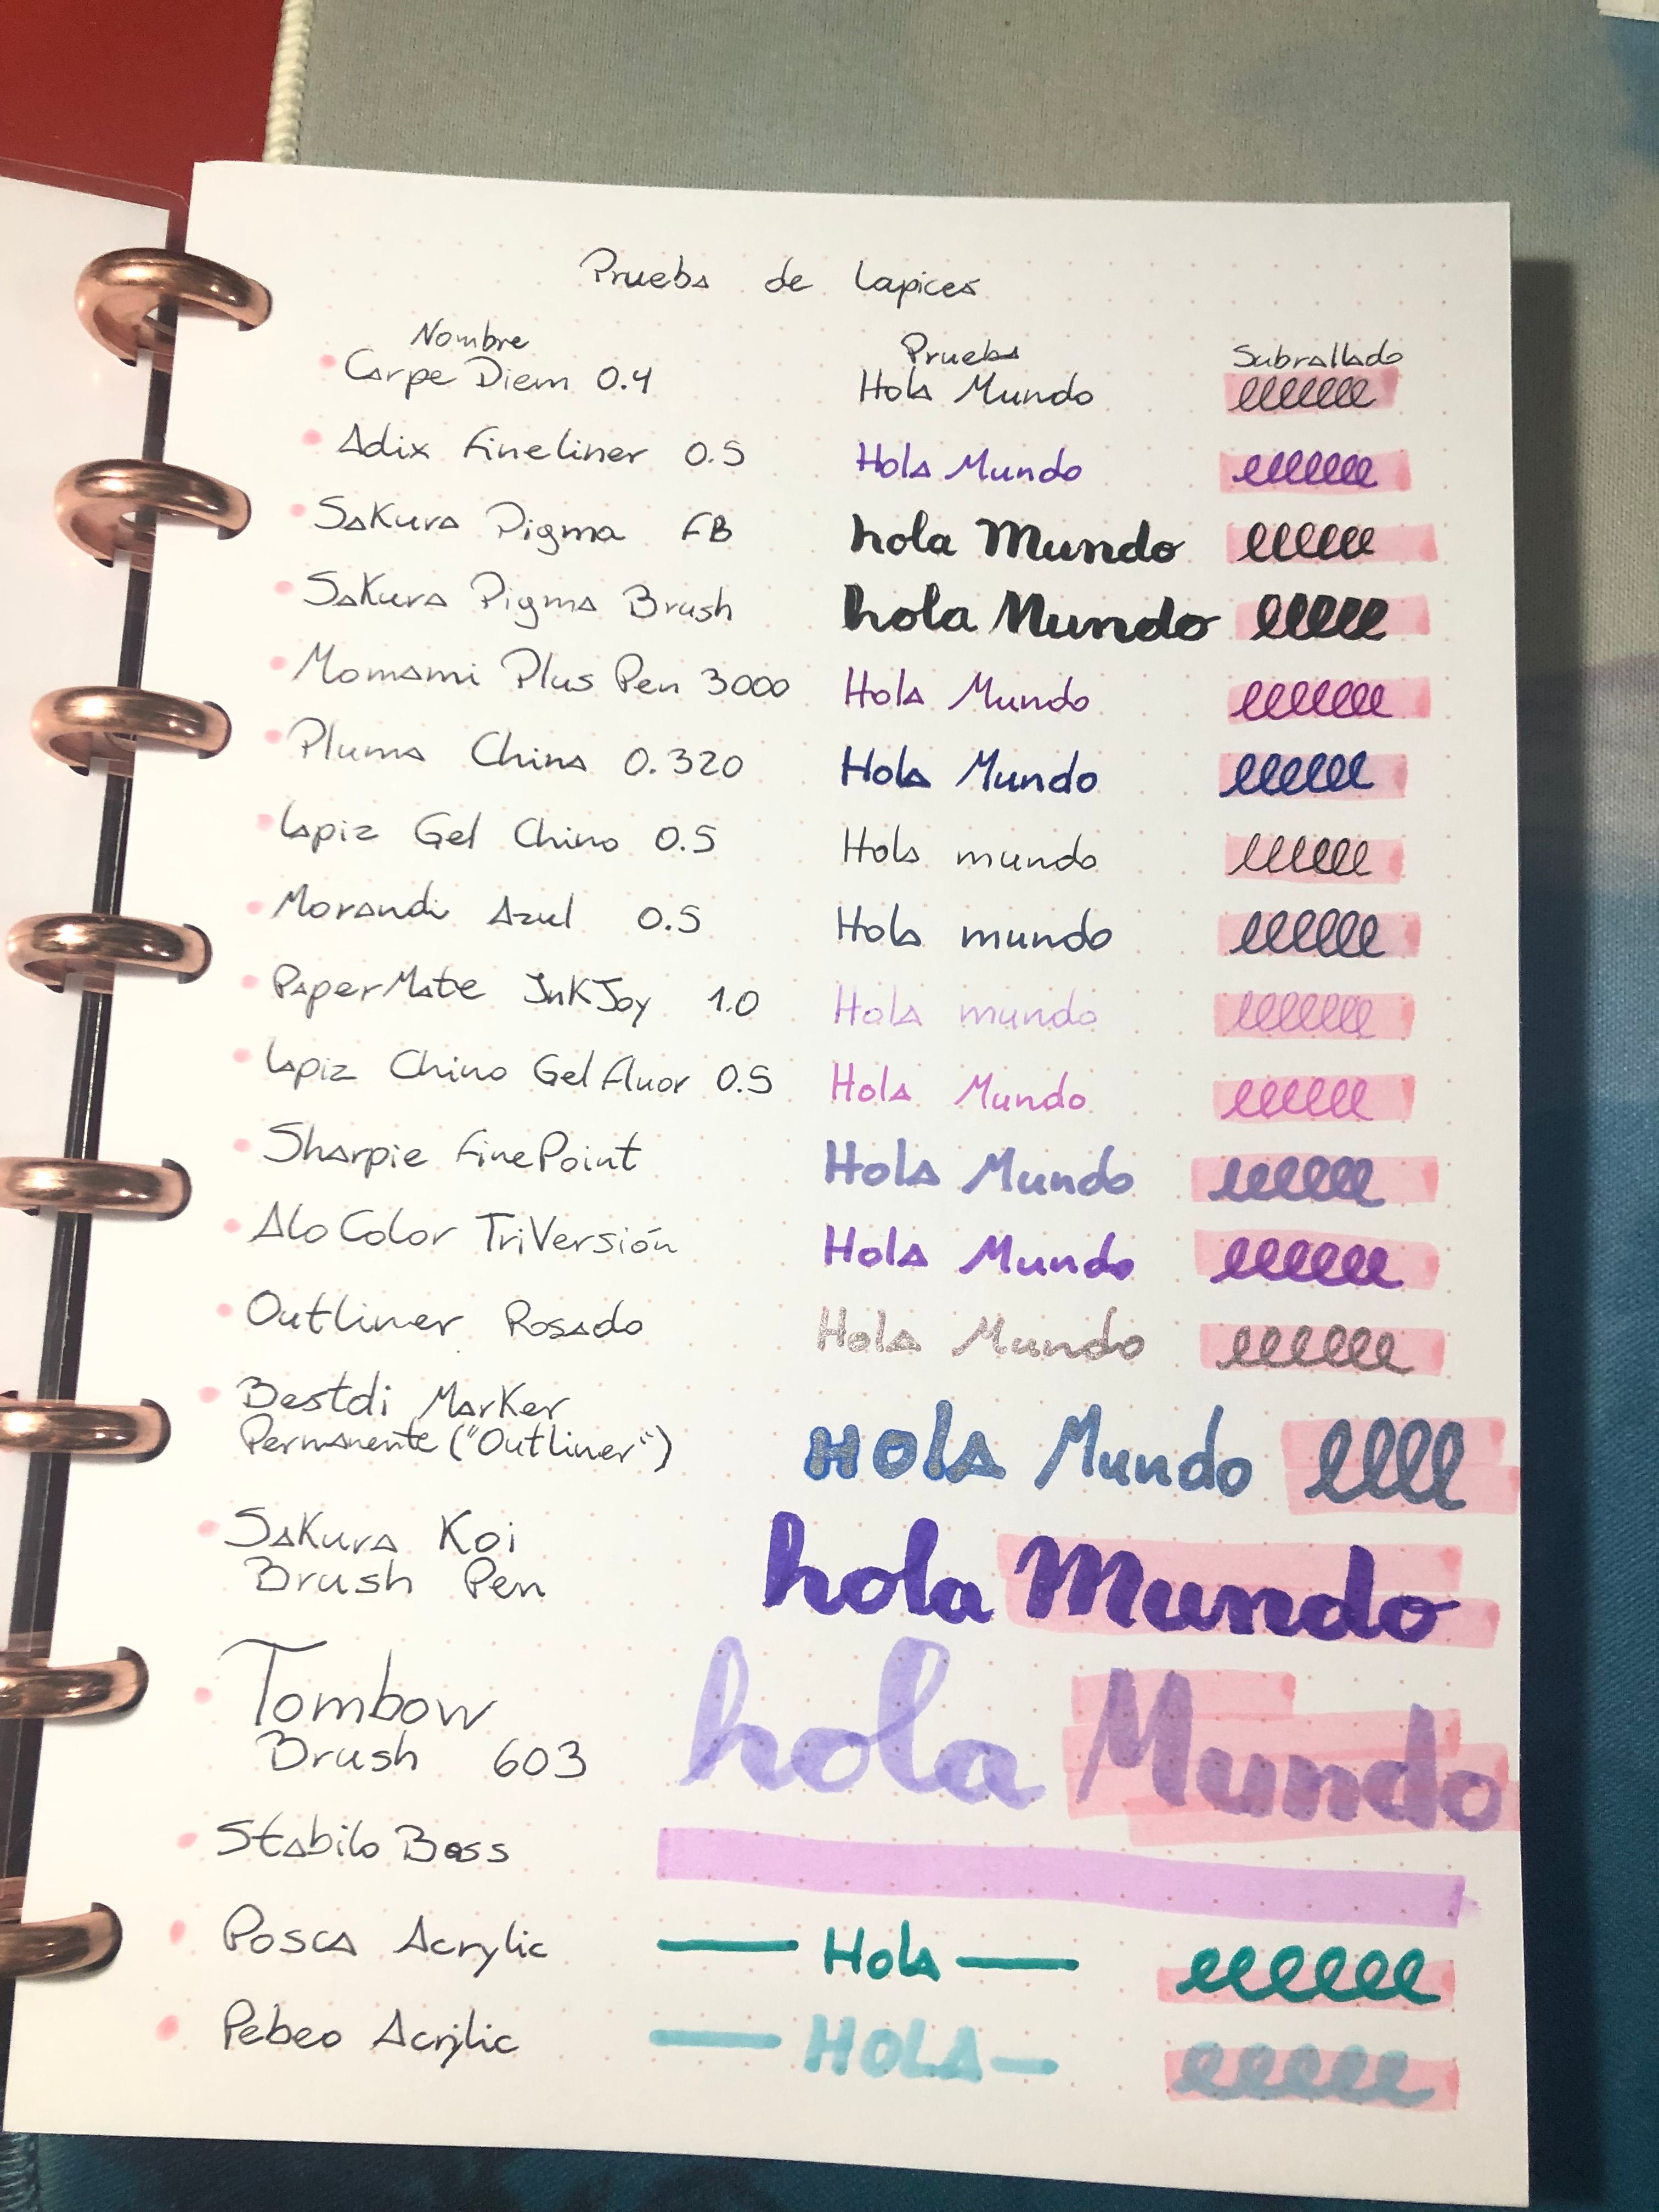 Prueba de Lapices
Nombre Prueba Subrallado
Carpe Diem 0.4 Hola Mundo
Adix Fineliner 0.5 Hola Mundo
Sakura Pigma FB hola Mundo
Sakura Pigma Brush hola Mundo
Momami Plus Pen 3000 Hola Mundo
Pluma China 0.320 Hola Mundo
Lapiz Gel Chino 0.5 Hola mundo
Morandi Azul 0.5 Hola mundo
PaperMate InkJoy 1.0 Hola mundo
Lapiz Chino Gel Fluor 0.5 Hola Mundo
Sharpie FinePoint Hola Mundo
Alo Color TriVersión Hola Mundo
Outliner Rosado Hola Mundo
Bestdi Marker
Permanente ("Outliner") HOLA Mundo
Sakura Koi
Brush Pen hola Mundo
Tombow
Brush 603 hola Mundo
Stabilo Boss
Posca Acrylic Hola
Pebeo Acrylic HOLA